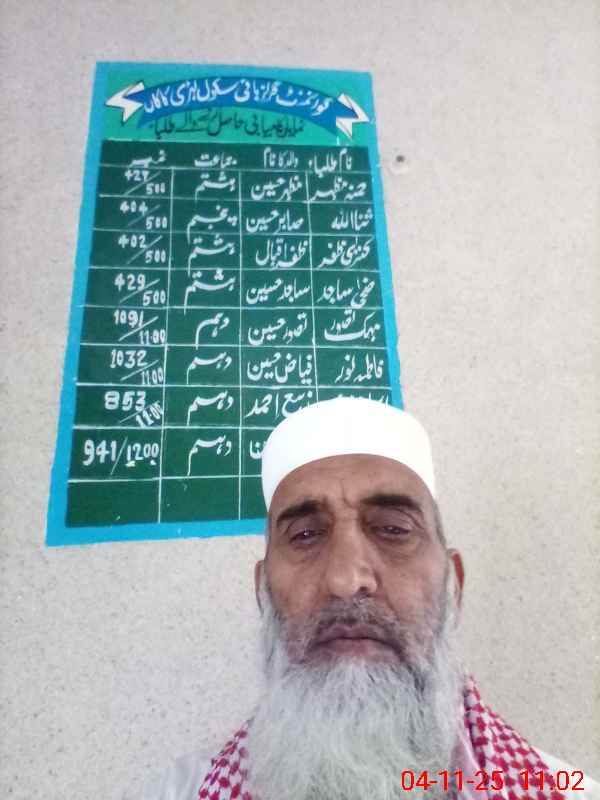 گورنمنٹ گرلز ہائی سکول لہڑی کاکاں
نمایاں کامیابی حاصل کرنیوالے طلباء
نام طلباء والد کا نام جماعت نمبر
حسنہ مظہر مظہر حسین ہشتم 427/500
ثنااللہ صابر حسین پنجم 404/500
ظفر ظفر اقبال ہشتم 402/500
ضحیٰ ساجد ساجد حسین ہشتم 429/500
مہک تصور تصور حسین دہم 1091/1100
فاطمہ نور فیاض حسین دہم 1032/1100
احمد دہم 853/1100
دہم 941/1200
04-11-25 11:02